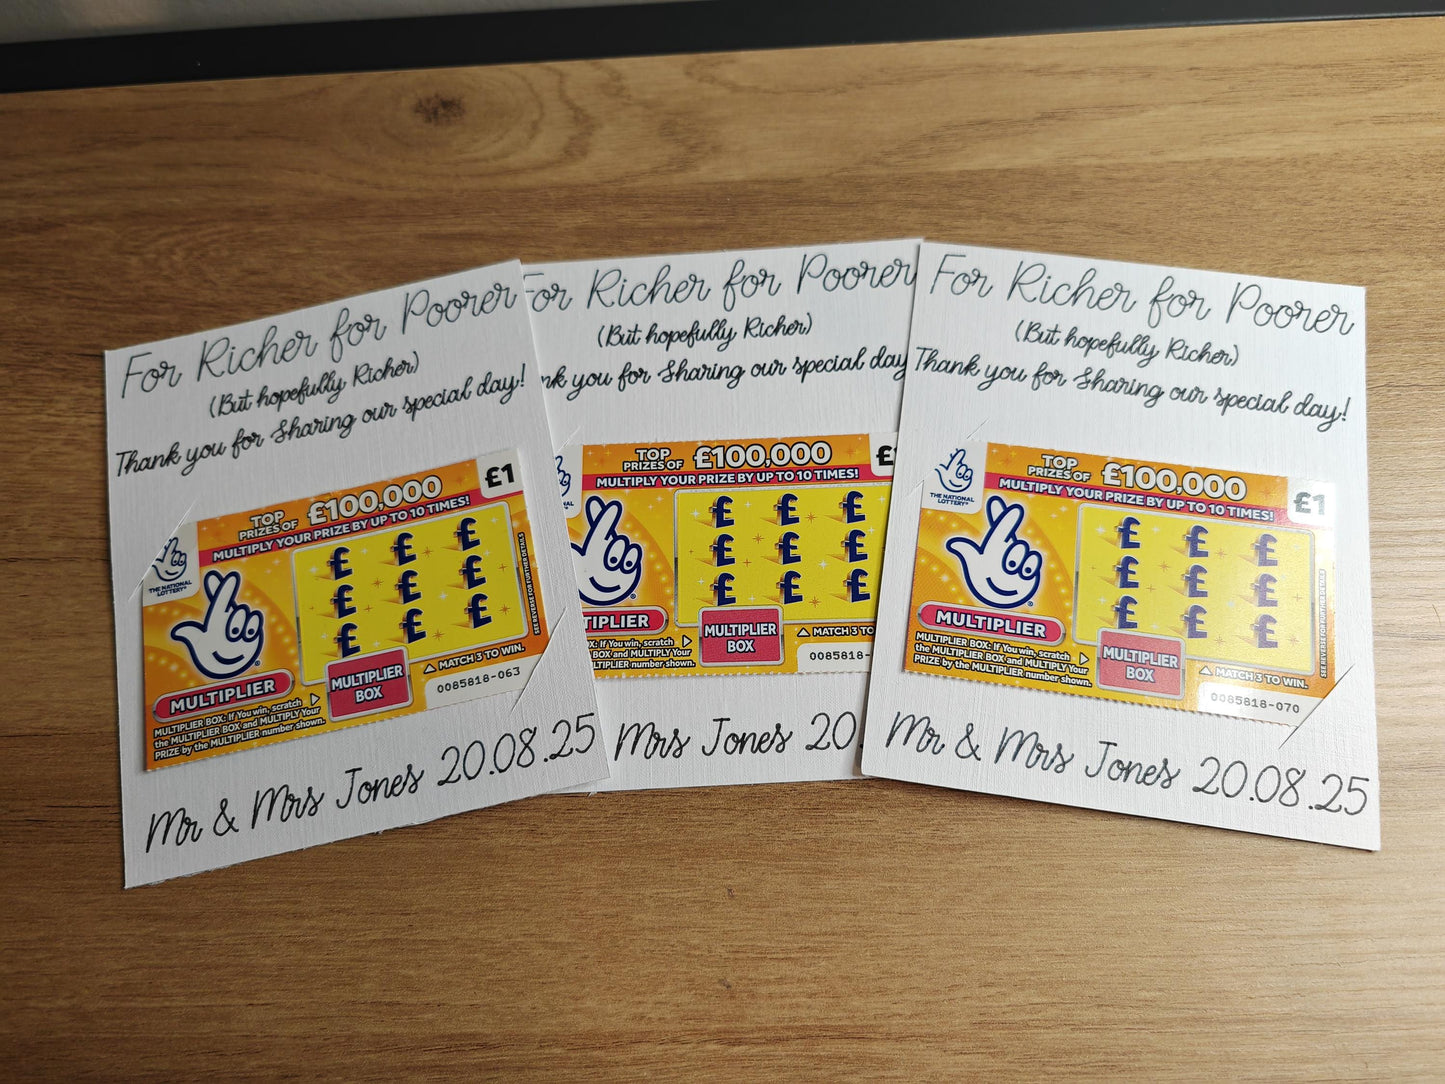 For Richer for Poorer
(But hopefully Richer)
Thank you for Sharing our special day!
THE NATIONAL
LOTTERY®
TOP
PRIZES OF £100,000
£1
MULTIPLY YOUR PRIZE BY UP TO 10 TIMES!
£ £ £
£ £ £
£ £ £
SEE REVERSE FOR FURTHER DETAILS
MULTIPLIER
MULTIPLIER BOX: If You win, scratch
the MULTIPLIER BOX and MULTIPLY Your
PRIZE by the MULTIPLIER number shown.
MULTIPLIER
BOX
MATCH 3 TO WIN.
0085818-063
Mr & Mrs Jones 20.08.25
For Richer for Poorer
(But hopefully Richer)
nk you for Sharing our special day
NAL
TOP
PRIZES OF £100,000
£
MULTIPLY YOUR PRIZE BY UP TO 10 TIMES!
£ £ £
£ £ £
£ £ £
TIPLIER
X: If You win, scratch
LIER BOX and MULTIPLY Your
LTIPLIER number shown.
MULTIPLIER
BOX
MATCH 3 TO
0085818-
Mrs Jones 20
For Richer for Poorer
(But hopefully Richer)
Thank you for Sharing our special day!
THE NATIONAL
LOTTERY®
TOP
PRIZES OF £100,000
£1
MULTIPLY YOUR PRIZE BY UP TO 10 TIMES!
£ £ £
£ £ £
£ £ £
SEE REVERSE FOR FURTHER DETAILS
MULTIPLIER
MULTIPLIER BOX: If You win, scratch
the MULTIPLIER BOX and MULTIPLY Your
PRIZE by the MULTIPLIER number shown.
MULTIPLIER
BOX
MATCH 3 TO WIN.
0085818-070
Mr & Mrs Jones 20.08.25